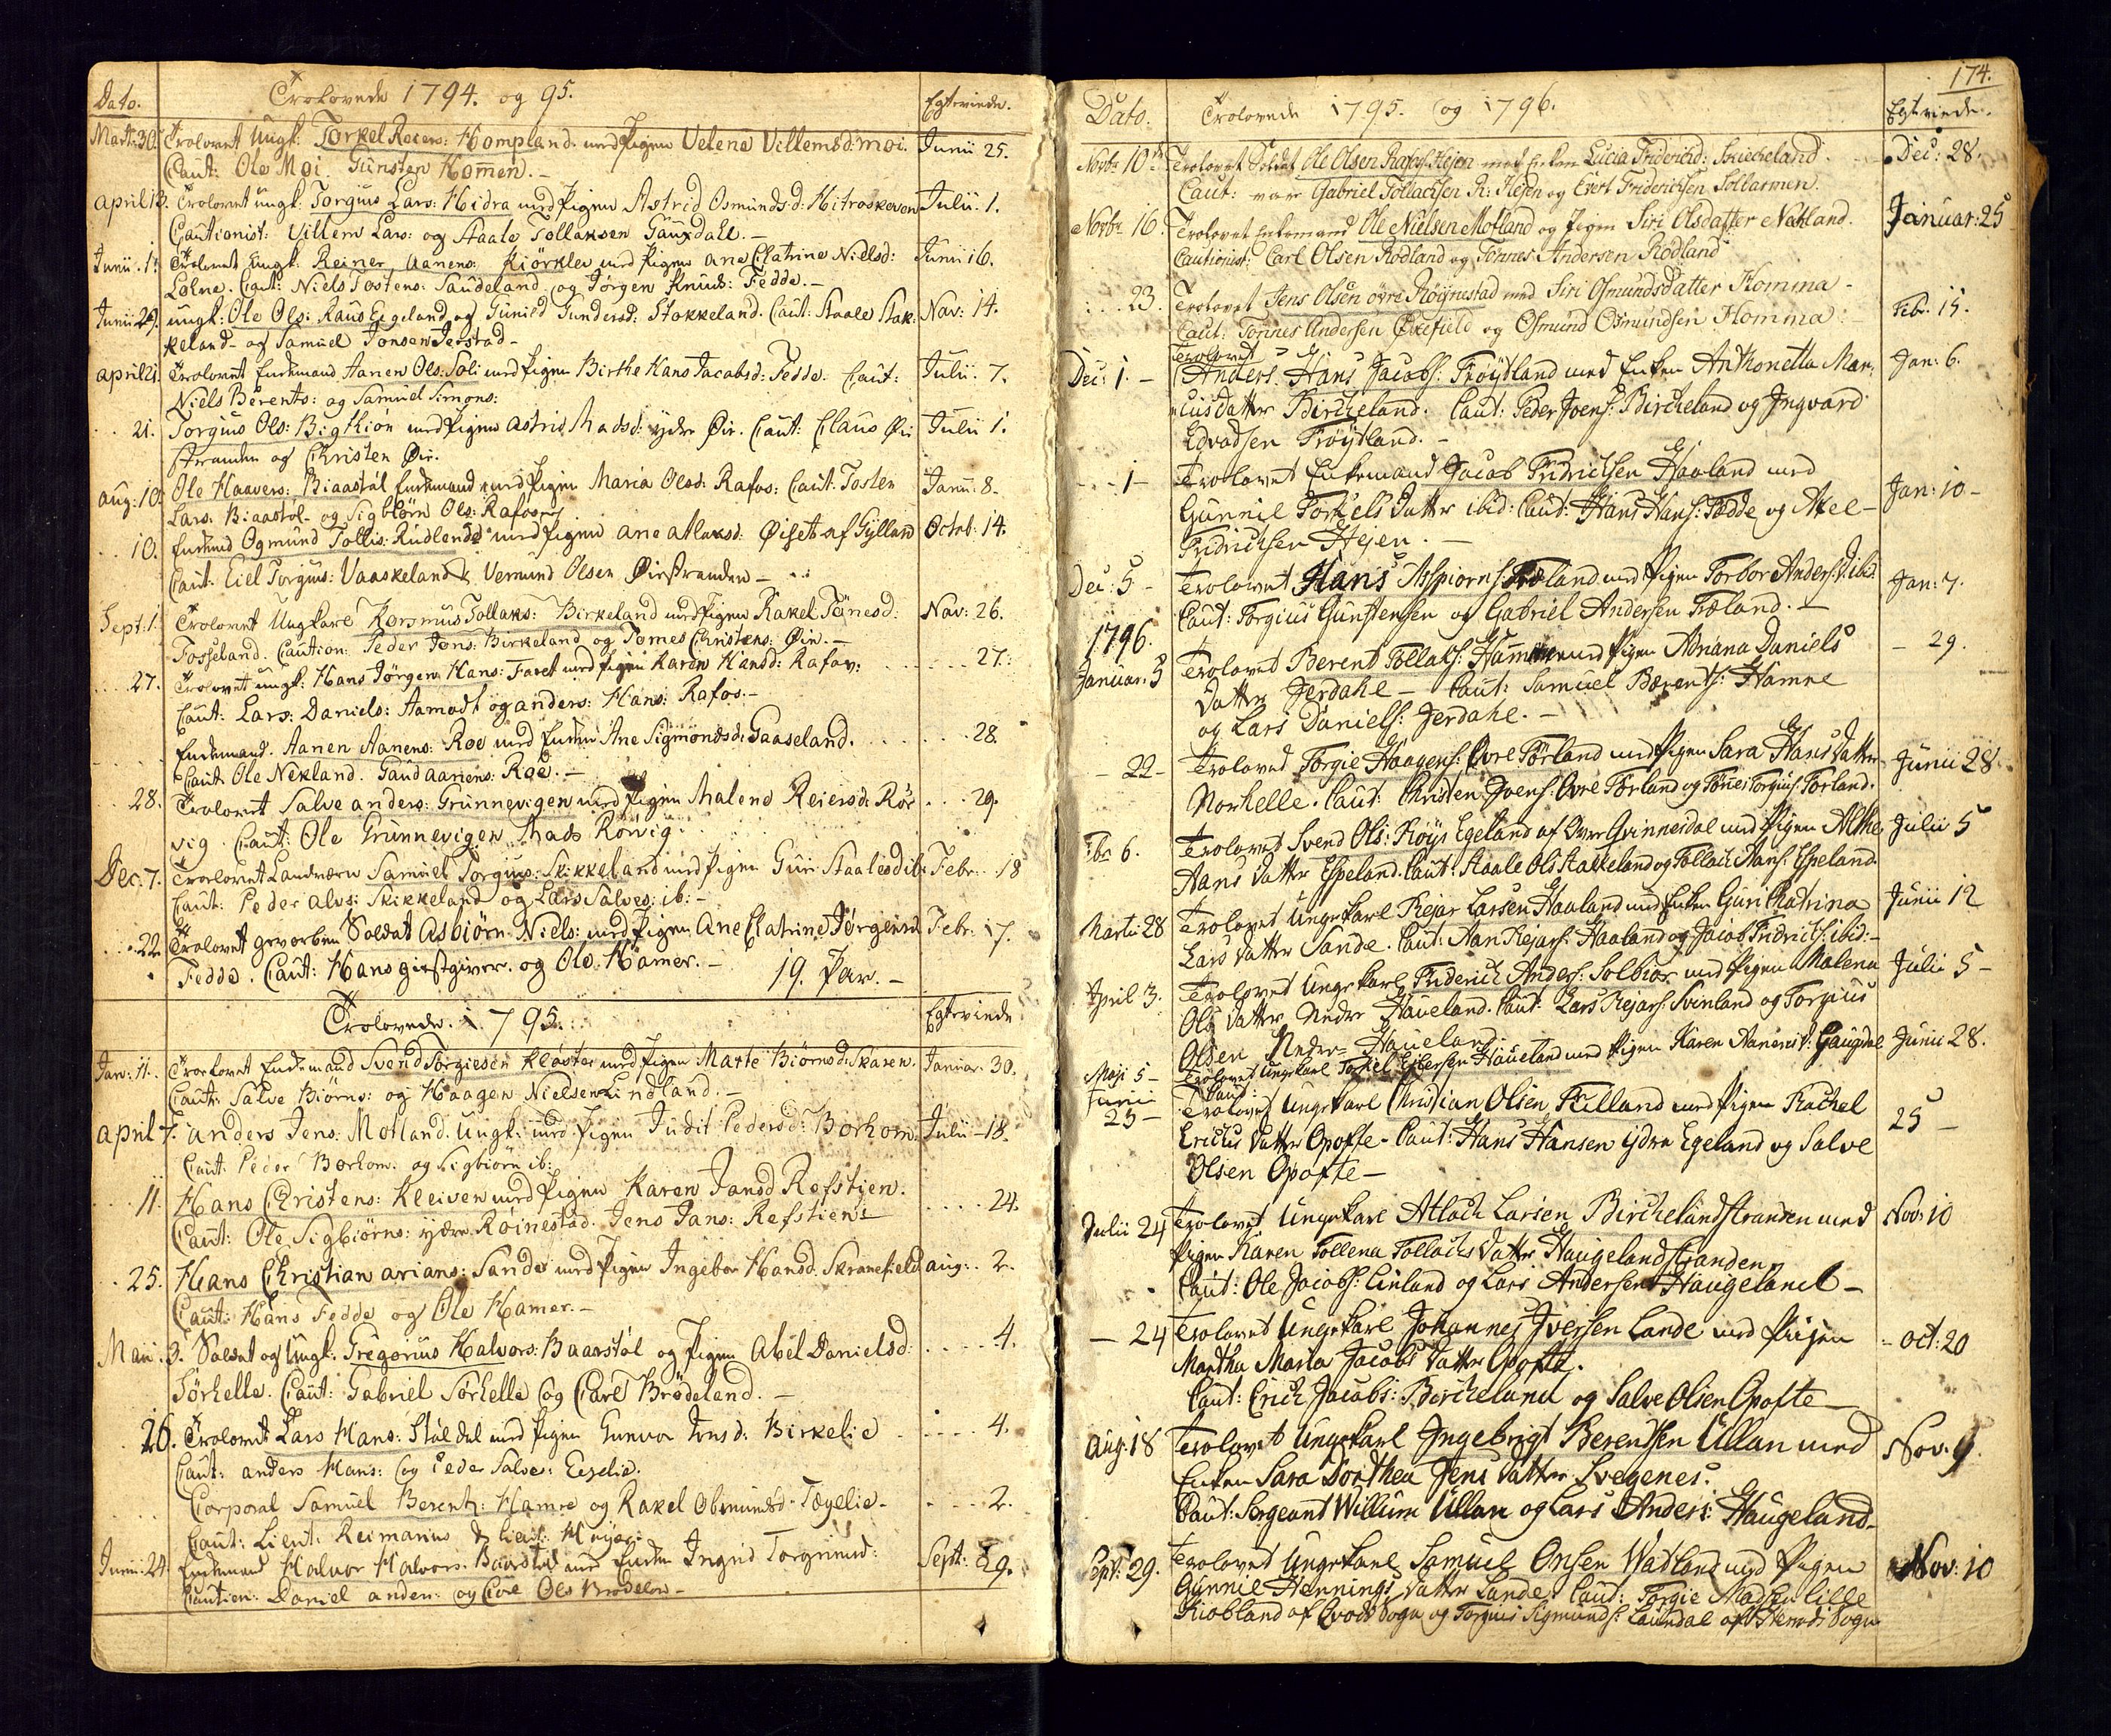 Dato. Trolovede 1794. og 95. Egteviede.
Mart: 30. Trolovet Ungk: Torkel Reiers: Hompland. med Pigen Velene Villemsd: Moi. Junii 25.
Caut: Ole Moi. Gunsten Homen. -
April 13. Trolovet ungk: Torgius Lars: Hidra med Pigen Astrid Osmundsd: Hitroskoven Julii. 1.
Cautionist: Villem Lars: og Staale Tollaksen Gauxdall. -
Junii. 1. Trolovet ungk: Reiner Aanens: Kiörklev med Pigen Ane Catrine Nielsd: Junii 16.
Lölne. Caut: Niels Tostens: Saudeland og Jörgen Knuds: Fedde. -
Junii 29. ungk: Ole Ols: Raus Eigeland og Gunild Gundersd: Stakkeland. Caut: Staale Stak: Nov: 14.
keland - og Samuel Jonsen Jerstad -
April 21. Trolovet Enkemand Aanen Ols: Soli med Pigen Birthe Hans Jacobsd: Fedde. Caut: Julii. 7.
Niels Berents: og Samuel Simons:
.. 21. Torgius Ols: Bigthion med Pigen Astrid Madsd: ydre Öie. Caut: Claus Öie Julii 1.
stranden og Christen Öie.
Aug: 10. Ole Haavers: Biaastöl Enkemand med Pigen Maria Olesd: Rafos: Caut. Tosten Janu: 8.
Lars: Biaastöl - og Sigbiörn Ols: Rafoss
.. 10. Enkemd Ogmund Tollis: Rudlende med Pigen Ane Atlaksd: Öiset af Gylland Octob: 14.
Caut: Eiel Torgius: Vaaskeland & Vermund Olsen Öiestranden -
Sept: 1. Trolovet Ungkarl Korsmus Tollaks: Birkeland med Pigen Rakel Tönesd: Nov: 26.
Fosseland. Caution: Peder Jens: Birkeland og Tomes Christens: Öie. -
... 27. Trolovet ungk: Hans Jörgen Hans: Faret med Pigen Karen Hansd: Rafos: ... 27.
Caut: Lars: Daniels: Aamodt og Anders: Hans: Rafos. -
Enkemand. Aanen Aanens: Roe med Enken Ane Sigmondsd: Gaaseland. ... 28.
Caut Ole Nekland. Gaud Aanens: Roe. -
. 28. Trolovet Salve Anders: Grunnevigen med Pigen Malene Reiersd: Rör ... 29.
vig. Caut: Ole Grunnevigen Mads Rörvig.
Dec. 7. Trolovet Landværn Samuel Torgius: Skikkeland med Pigen Guri Staalesd ib: Febr. 18
Caut: Peder Alvs: Skikkeland og Lars Salves: ib: -
... 22 Trolovet gevorben Soldat Asbiörn Niels: med Pigen Ane Catrine Jörgensd Febr: 17.
Fedde. Caut: Hans giestgiver. og Ole Hamer. - 19. Par. -
Trolovede. 1795. Egteviede
Jan: 11. Trolovet Enkemand Svend Torgiesen Kloster med Pigen Marte Biörnsd: Skaren. Januar. 30.
Caut: Salve Biörns: og Haagen Nielsen Lindland. -
April 7. Anders Jens: Motland. Ungk: med Pigen Judit Pedersd: Borhom: Julii - 18.
Caut: Peder Borhom. og Sigbiörn ib:
11. Hans Christens: Kleiven med Pigen Karen Jansd Refstien. .... 24.
Caut: Ole Sigbiörns: ydre Röinestad. Jens Jans: Refstien
. 25. Hans Christian Arians: Sande med Pigen Ingebor Hansd. Skranefield Aug: . 2.
Caut: Hans Fedde og Ole Hamer. -
Maii. 3. Soldat og Ungk: Gregorius Halvors: Baarstöl og Pigen Abel Danielsd: .... 4.
Sörhelle. Caut: Gabriel Sörhelle og Carl Brödeland. -
. 26. Trolovet Lars Hans: Stöldal med Pigen Gunvor Jonsd: Birkelie .... 4.
Caut: Anders Hans: og Peder Salve: Egelie.
Corporal Samuel Berents: Hamre og Rakel Obsmundsd: Tegelie - ... 2.
Caut: Lieut: Reimarius & Lieut: Heyer:
Junii: 24. Enkemand Halvor Halvors: Baarstöl med Enken Ingrid Torgrimsd: Sept: 29.
Caution: Daniel Anders: og Carl Ols Brödelan -
174.
Dato. Trolovede 1795. og 1796. Egteviede.
Novbr 10de Trolovet Soldat Ole Olsen Rafos Hejen med Enken Lucia Friderichd: Skickeland. Dec: 28.
Caut: var Gabriel Tollachsen R: Hejen og Evert Friderichsen Sollarmen.
Novbr 16. Trolovet Enkemand Ole Nielsen Motland og Pigen Siri Olsdatter Nækland. Januar: 25
Cautionist: Carl Olsen Rödland og Tönnes Andersen Rödland
: .. 23. Trolovet Jens Olsen övre Röÿnestad med Siri Osmundsdatter Homma - Febr. 15.
Caut: Tönnes Andersen Öxefield og Osmund Osmundsen Homma: -
Trolovet
Dec: 1. - Anders. Hans Jacobs: Fröÿdland med Enken Anthonetta Mar: Jan: 6.
cusdatter Bircheland. Caut: Peder Joens: Bircheland og Ingvard
Edvadsen Fröÿdland. -
- - 1 - Trolovet Enkemand Jacob Fridrichsen Haaland med Jan: 10 -
Gunnil Torkels datter ibid: Caut: Hans Hans: Fedde og Axel -
Fridrichsen Hejen. -
Dec: 5 - Trolovet Hans Asspiörns: Træland med Pigen Torbor Anders: D. ibid: Jan: 7.
Caut: Torgius Gunstensen og Gabriel Andersen Træland. -
1796.
Januar. 5 Trolovet Berent Tollaks: Hamre med Pigen Adriana Daniels - 29.
datter Jerdahl - Caut: Samuel Bærents: Hamre
og Lars Daniels: Jerdahl. -
- 22 - Trolovet Torgie Haagens: Ovre Förland med Pigen Sara Hans datter Junii 28.
Norhelle. Caut: Christen Joens: Ovre Förland og Tönnes Torgius: Förland.
Fbr 6. Trolovet Svend Ols: Roÿs Egeland af Over Qvinnesdal med Pigen Althe Julii 5
Hans datter Espeland. Caut: Staale Ols Stakkeland og Tollach Hans: Espeland.
Marti: 28 Trolovet Ungekarl Rejar Larsen Haaland med Enken Guri Chatrina Junii 12
Lars datter Sande. Caut: Aan Rejars: Haaland og Jacob Fridrichs: ibid: -
April 3. Trolovet Ungekarl Friderich Anders: Solbiör med Pigen Malena Julii 5 -
Ols datter Nedre Haueland. Caut: Lars Rejars: Svinland og Torgius
Olsen Nedre Haueland
Maji 5 - Trolovet Ungekarl Torkel Eilersen Haueland med Pigen Karen Aanensd: Gaugdal Junii 28.
Caut:
Junii
23 - Trolovet Ungekarl Christian Olsen Fuilland med Pigen Rachel 25 -
Erichs datter Opofte - Caut: Hans Hansen ÿdre Egeland og Salve
Olsen Opofte -
Julii 24 Trolovet Ungekarl Atlach Larsen Birchelandstranden med Nov: 10
Pigen Karen Tollena Tollachs datter Haugelandstranden
Caut: Ole Jacobs: Linland og Lars Andersen Haugeland -
- 24 Trolovet Ungekarl Johannes Iversen Lande med Piigen - Oct: 20
Martha Maria Jacobs datter Opofte.
Caut: Erich Jacobs: Bircheland og Salve Olsen Opofte -
Aug: 18 Trolovet Ungekarl Ingebrigt Berendsen Ullan med Nov. 9.
Enken Sara Dorthea Jens datter Svegenes.
Caut: Sergeant Willum Ullan og Lars Anders: Haugeland -
Sept: 29. Trolovet Ungekarl Samuel Onsen Watland med Pigen Nov: 10
Gunnil Hennings datter Lande. Caut: Torgie Madsen Lille
Kiobland af Qvods Sogn og Torgius Sigmunds: Laundal af Sogn